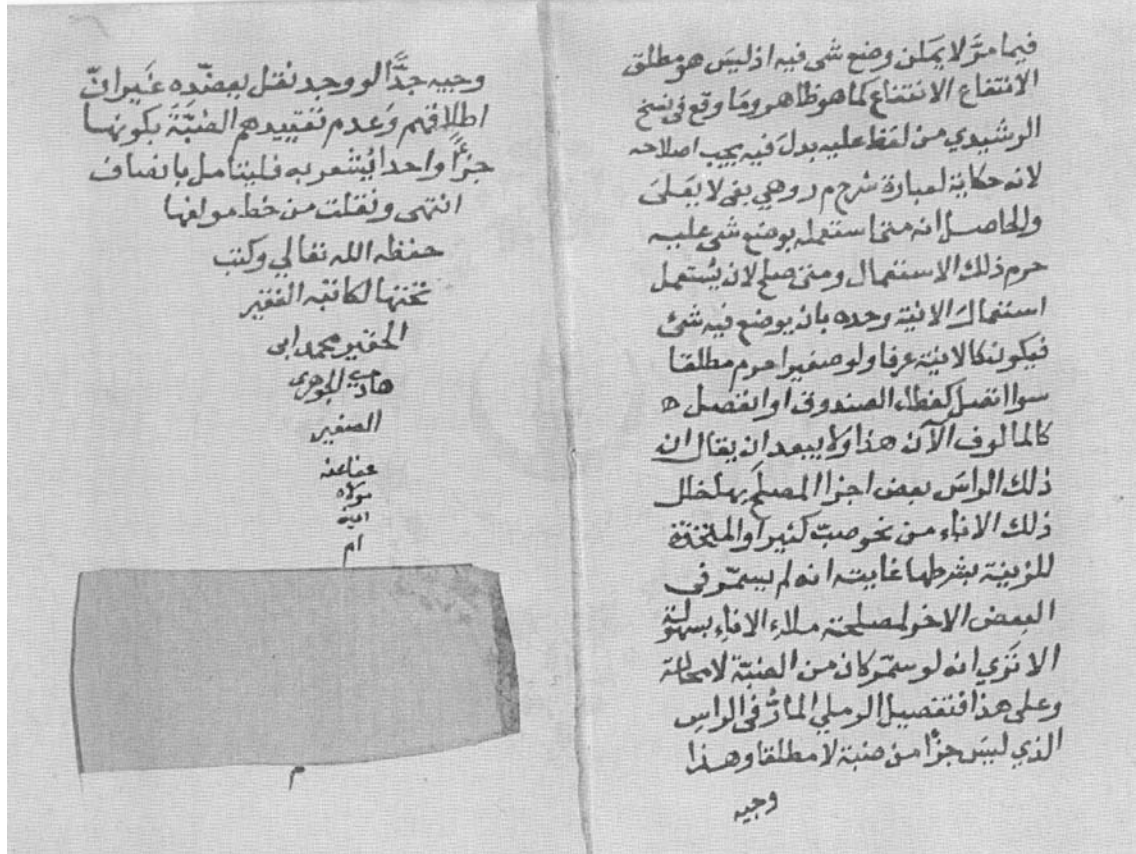 فيما مرَّ لا يمكن وضع شى فيه اذ ليسَ هو مطلق
الانتفاع الانتفاع كما هو ظاهر ومَا وقع فى نسخ
الرشيدي من لفظ عليه بدلَ فيه يجب اصلاحه
لانه حكاية لعبارة شرح م ر وهي بقى لا يَفعلىَ
والحاصل انه متى استعمله بوضع شى عليه
حرم ذلك الاستعمال ومتى صلح لان يُستعمل
استعمال الانية وحده بان يوضع فيه شئ
فيكون كالانية عرفا ولو صغيرا حرم مطلقا
سوا اتصل كغطاء الصندوق او انفصل ه
كالمالوف الآن هذا ولا يبعد ان يقال ان
ذلك الراسَ بعض اجزا المصلَح بها خلل
ذلك الاناء من نحو صبّ كثيرا والمتخذة
للزينة بشرطها غايته انه لم يسمّر فى
البعض الاخر لمصلحة ملاء الاناء بسهولة
الا تَرَي انه لو سمّر كان من الضبّة لا محالة
وعلى هذا فتفصيل الرملي المارُّ فى الراسِ
الذي ليسَ جزأ من ضبة لا مطلقا وهذا
وجيه
وجيه جدًّا لو وجد نقل يعضّده غَير انّ
اطلاقهم وَعدم تقييدهم الضبَّةَ بكونها
جزأً واحدا يُشعر به فليتامل بانصاف
انتهى ونقلت من خط مولفها
حفظه الله تعالي وكتب
تحتها لكاتبه الفقير
الحقير محمد ابى
هادي الجوهرى
الصغير
عفا عنه
مولاه
امين
ام
م